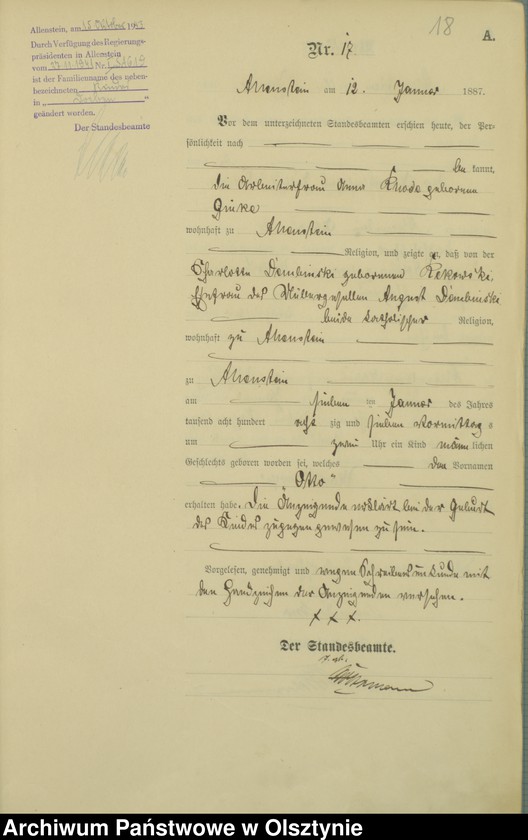 18
A.
Allenstein, am 18. Oktober 19
Durch Verfügung des Regierungs-
präsidenten in Allenstein
vom Nr.
ist der Familienname des neben-
bezeichneten
in „ “
geändert worden.
Der Standesbeamte
Nr. 17
Allenstein am 12. Januar 1887.
Vor dem unterzeichneten Standesbeamten erschien heute, der Per-
sönlichkeit nach
bekannt,
die Arbeiterfrau Anna Rhode geborene
wohnhaft zu Allenstein
Religion, und zeigte an, daß von der
Charlotte Dembinski geborenen
Ehefrau des Müllergesellen August Dembinski
beide katholischer Religion,
wohnhaft zu Allenstein
zu Allenstein
am sieben ten Januar des Jahres
tausend acht hundert acht zig und sieben Vormittag s
um Uhr ein Kind männ lichen
Geschlechts geboren worden sei, welches den Vornamen
„Otto“
erhalten habe. Die Anzeigende erklärt bei der Geburt
des Kindes zugegen gewesen zu sein.
Vorgelesen, genehmigt und wegen Schreibensunkunde mit
den Handzeichen der Anzeigenden versehen.
× × ×.
Der Standesbeamte.
Archiwum Państwowe w Olsztynie